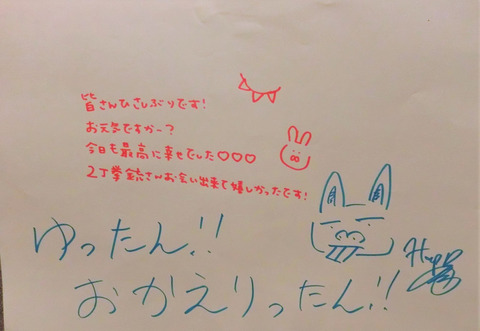 皆さんひさしぶりです!
お元気ですかー?
今日も最高に幸せでした♡♡♡
2丁拳銃さんお会い出来て嬉しかったです!
ゆったん!!
おかえりったん!!